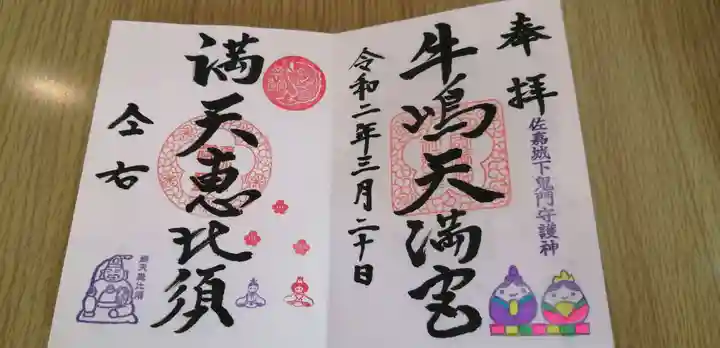 奉拝
佐嘉城下鬼門守護神
牛嶋天満宮
令和二年三月二十日
満天恵比須
仝右
満天恵比須